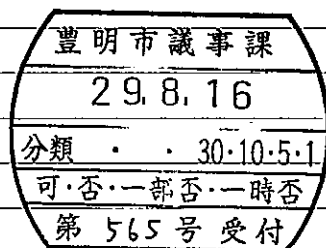 豊明市議事課
29.8.16
分類 ・ ・ 30・10・5・1
可・否・一部否・一時否
第 565 号 受付